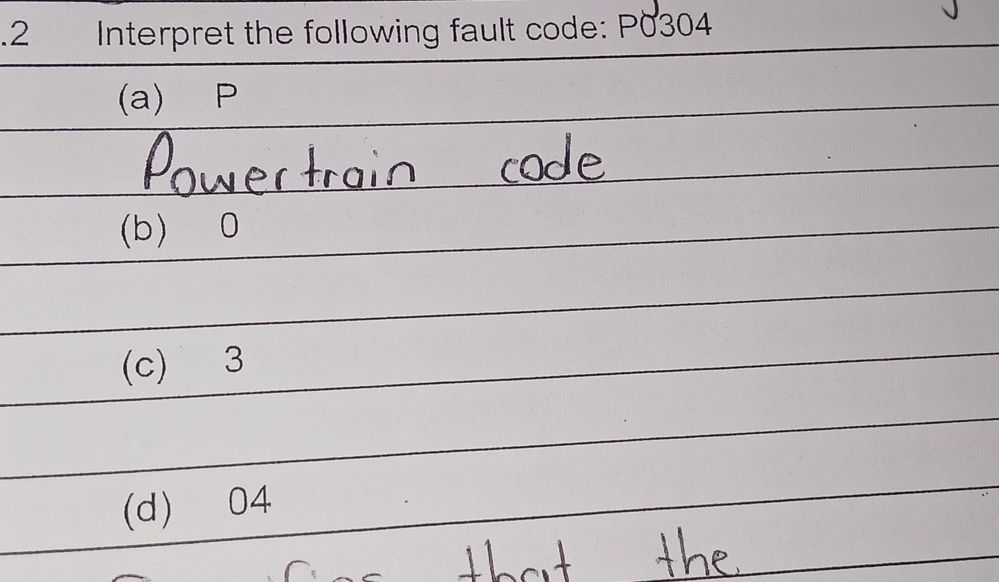 .2 Interpret the following fault code: P0304
(a) P
Powertrain code
(b) 0
(c) 3
(d) 04
that the